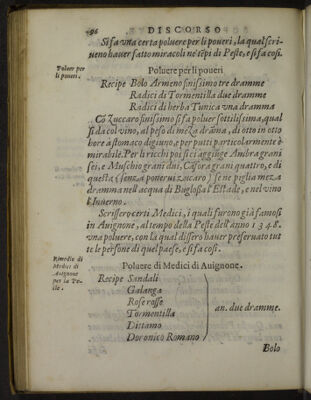 96 DISCORSO
Si fa vna certa poluere per li poueri, la qual scri-
ueno hauer fatto miracoli ne tẽpi di Peste, e si fa cosi.
Poluer per
li poueri.
Poluere per li poueri
Recipe Bolo Armeno finissimo tre dramme
Radici di Tormentilla due dramme
Radici di herba Tunica vna dramma
Cõ Zuccaro finissimo si fa poluer sottilissima, qual
si da col vino, al peso di meza drãma, di otto in otto
hore a stomaco digiuno, e per putti particolarmente è
mirabile. Per li ricchi poi si ci aggiũge Ambra grani
sei, e Muschio grani dui, Cãfora grani quattro, e di
questa (senza poner ui zuccaro) se ne piglia meza
dramma nell acqua di Buglossa l'Estade, e nel vino
l'Inuerno.
Scrissero certi Medici, i quali furono già famosi
in Auignone, al tempo della Peste dell'anno 1348.
vna poluere, con la qual dissero hauer preseruato tut
te le persone di quel paese, e si fa cosi.
Rimedio di
Medici di
Auignone
per la Pe-
ste.
Poluere di Medici di Auignone.
Recipe Sandali
Galanga
Rose rosse
Tormentilla
Dittamo
Doronico Romano
an. due dramme.
Bolo